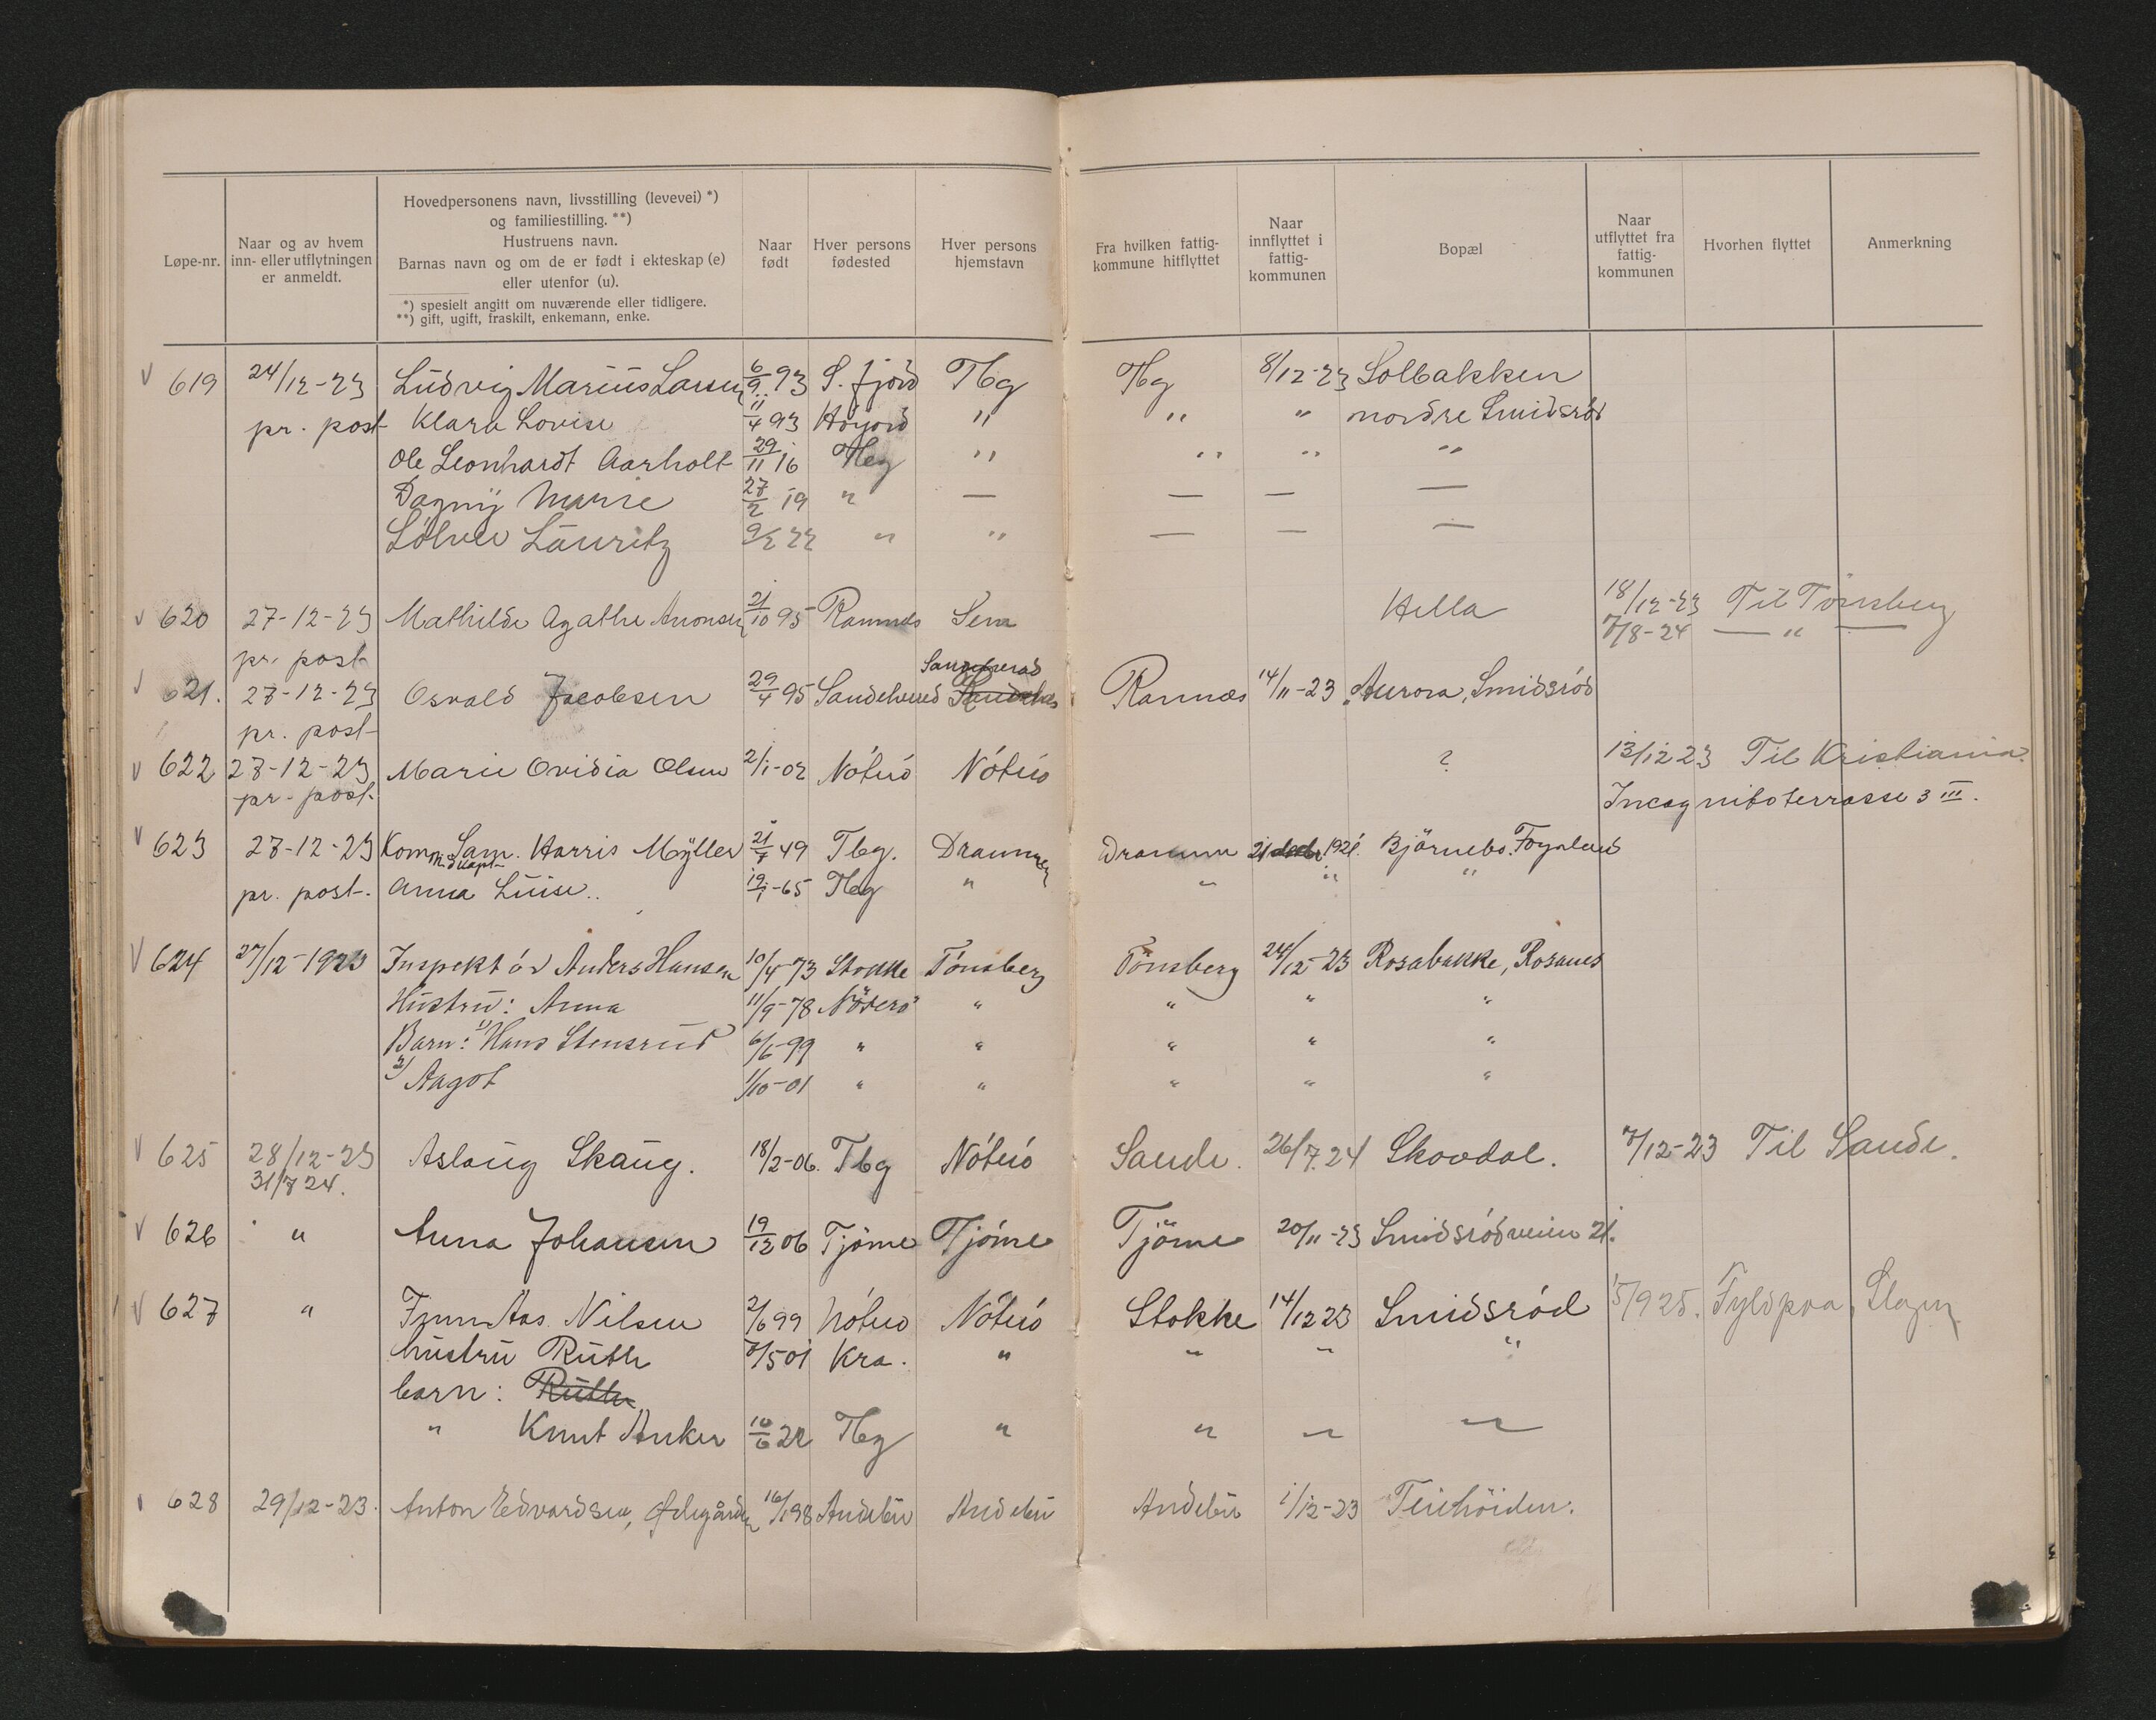 Løpe-nr.
Naar og av hvem
inn- eller utflytningen
er anmeldt.
Hovedpersonens navn, livsstilling (levevei) *)
og familiestilling. **)
Hustruens navn.
Barnas navn og om de er født i ekteskap (e)
eller utenfor (u).
*) spesielt angitt om nuværende eller tidligere.
**) gift, ugift, fraskilt, enkemann, enke.
Naar
født
Hver persons
fødested
Hver persons
hjemstavn
Fra hvilken fattig-
kommune hitflyttet
Naar
innflyttet i
fattig-
kommunen
Bopæl
Naar
utflyttet fra
fattig-
kommunen
Hvorhen flyttet
Anmerkning
v 619 24/12-23 Ludvig Marius Larsen 6/9 93 S. fjord Tbg Tbg 8/12-23 Solbakken
pr. post Klara Lovise 11/4 93 Höyord " " " nordre Smidsröd
Ole Leonhardt Aarholt 29/11 16 Tbg " " " "
Dagny Marie 27/2 19 " — — — —
Lauritz 9/2 22 " " — — —
v 620 27-12-23 Mathilde Agathe Aronsen 21/10 95 Ramnes Sem Hella 18/12-23 Til Tönsberg
pr. post 7/8-24 — " —
v 621. 27-12-23 Osvald Jacobsen 29/4 95 Sandeherred Sandeherred Ramnæs 14/11-23 Aurora, Smidsröd
pr. post
v 622 27-12-23 Marie Ovidia Olsen 2/1-02 Nóteró Nóteró ? 13/12 23 Til Kristiania.
pr. post. Incognitoterrasse 3 III.
v 623 27-12-23 Sam. Harris Mÿller 21/7 49 Tbg. Drammen Drammen 21 1921. Björnebo, Fognland
pr. post. Anna Luise.. 19/1-65 Tbg " " " "
v 624 27/12-1923 Inspektör Anders Hansen 10/4-73 Stokke Tönsberg Tönsberg 24/12-23 Rosabakke, Rosanes
Hustru: Anna 11/9-78 Nöterö " " " "
Barn: 1) Hans Stensrud 6/6-99 " " " " "
2) Aagot 1/10-01 " " " " "
v 625 28/12-23 Aslaug Skaug. 18/2-06. Tbg Nóteró Sande. 26/7.24 Skovdal. 7/12-23 Til Sande.
31/7 24.
v 626 " Anna Johansen 19/12 06 Tjöme Tjöme Tjöme 20/11-23 Smidsródveien 21.
v 627 " Finn Aas Nilsen 2/6 99 Nóteró Nóteró Stokke 14/12 23 Smidsród 15/9 25. Fyldpaa, Slagen
hustru Ruth 7/5 01 Kra. " " " "
barn: Ruth
" Knut Anker 10/6 22 Tbg " " " "
v 628 29/12-23. Anton Edvardsen, Ödegården 16/1 98 Andebu Andebu Andebu 1/12-23 Teiehöiden.